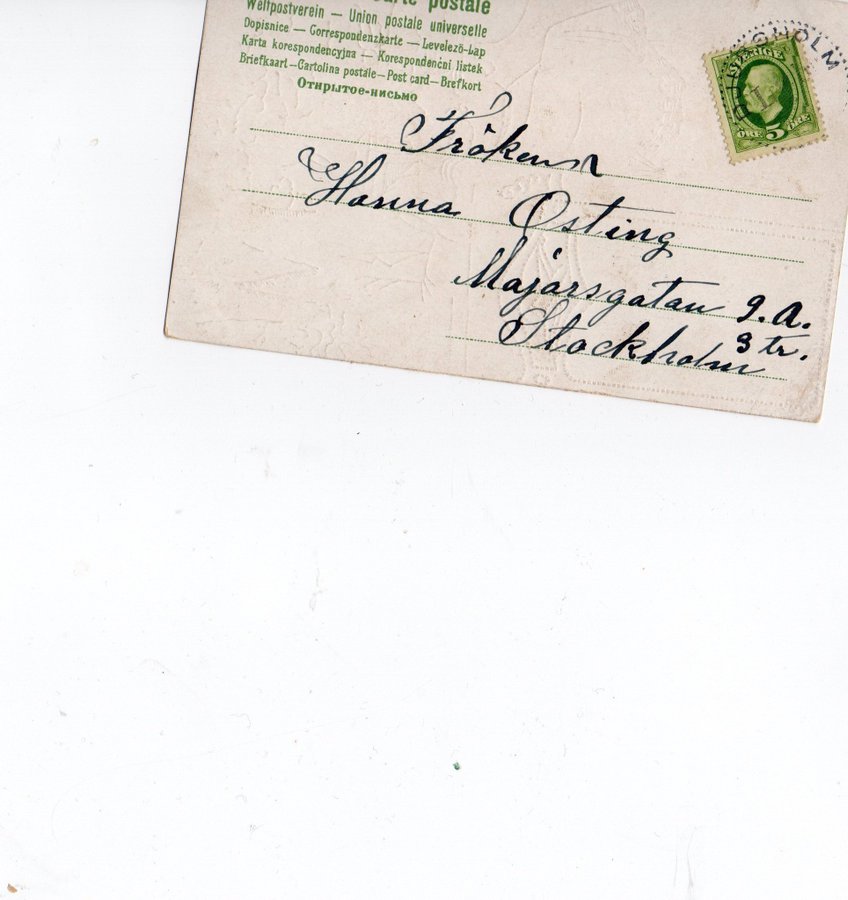 postale
Weltpostverein — Union postale universelle
Dopisnice — Correspondenzkarte — Levelezö-Lap
Karta korespondencyjna — Korespondenční listek
Briefkaart—Cartolina postale—Post card—Brefkort
Открытое-письмо
SVERIGE
ÖRE 5 ÖRE
Fröken
Hanna Osting
Majorsgatan 9.A.
3 tr.
Stockholm